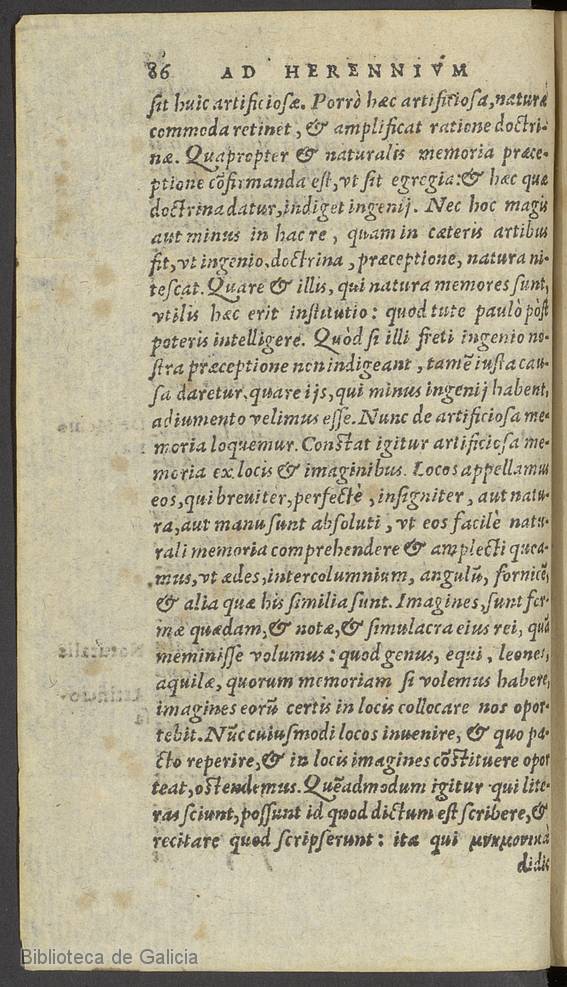 86 AD HERENNIVM
sit huic artificiosæ. Porrò hæc artificiosa, naturæ
commoda retinet, & amplificat ratione doctri-
næ. Quapropter & naturalis memoria præce-
ptione cōfirmanda est, vt sit egregia: & hæc quæ
doctrina datur, indiget ingenij. Nec hoc magis
aut minus in hac re, quam in cæteris artibus
fit, vt ingenio, doctrina, præceptione, natura ni-
tescat. Quare & illis, qui natura memores sunt,
vtilis hæc erit institutio: quod tute paulò pòst
poteris intelligere. Quòd si illi freti ingenio no-
stra præceptione non indigeant, tamē iusta cau-
sa daretur, quare ijs, qui minus ingenij habent,
adiumento velimus esse. Nunc de artificiosa me-
moria loquemur. Constat igitur artificiosa me-
moria ex locis & imaginibus. Locos appellamus
eos, qui breuiter, perfectè, insigniter, aut natu-
ra, aut manu sunt absoluti, vt eos facilè natu-
rali memoria comprehendere & amplecti quea-
mus, vt ædes, intercolumnium, angulū, fornicē,
& alia quæ his similia sunt. Imagines, sunt for-
mæ quædam, & notæ, & simulacra eius rei, quā
meminisse volumus: quod genus, equi, leones,
aquilæ, quorum memoriam si volemus habere,
imagines eorū certis in locis collocare nos opor-
tebit. Nūc cuiusmodi locos inuenire, & quo pa-
cto reperire, & in locis imagines cōstituere opor
teat, ostendemus. Quēadmodum igitur qui lite-
ras sciunt, possunt id quod dictum est scribere, &
recitare quod scripserunt: ita qui μνημονικὰ
didic
Biblioteca de Galicia